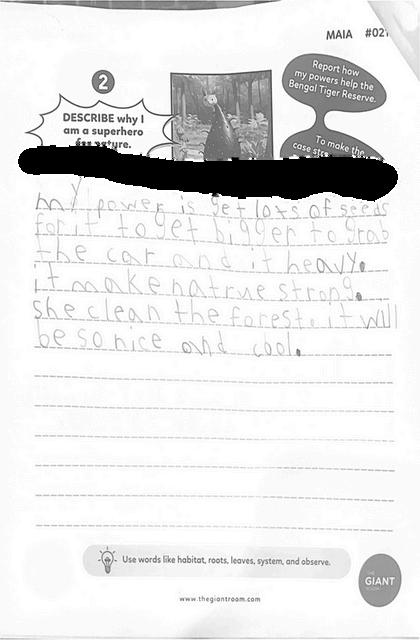 MAIA #021
2
Report how
my powers help the
Bengal Tiger Reserve.
DESCRIBE why I
am a superhero
for nature.
To make the
my power is get lots of seeds
for it to get bigger to grab
the car and it heavy.
it make natrue strong.
she clean the forest. it will
be so nice and cool.
Use words like habitat, roots, leaves, system, and observe.
THE
GIANT
ROOM
www.thegiantroom.com